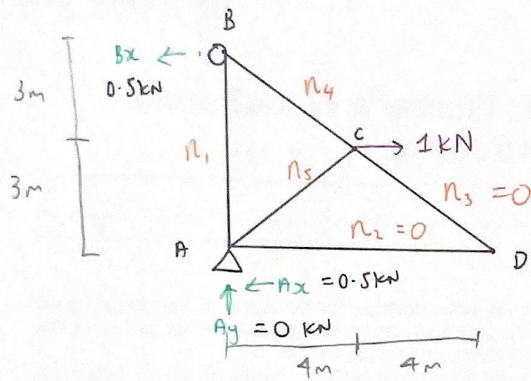 B
Bx ←
0.5kN
3m
n4
C
→ 1kN
n1
n5
3m
n3 = 0
n2 = 0
A
D
←Ax = 0.5kN
Ay = 0 kN
4m
4m